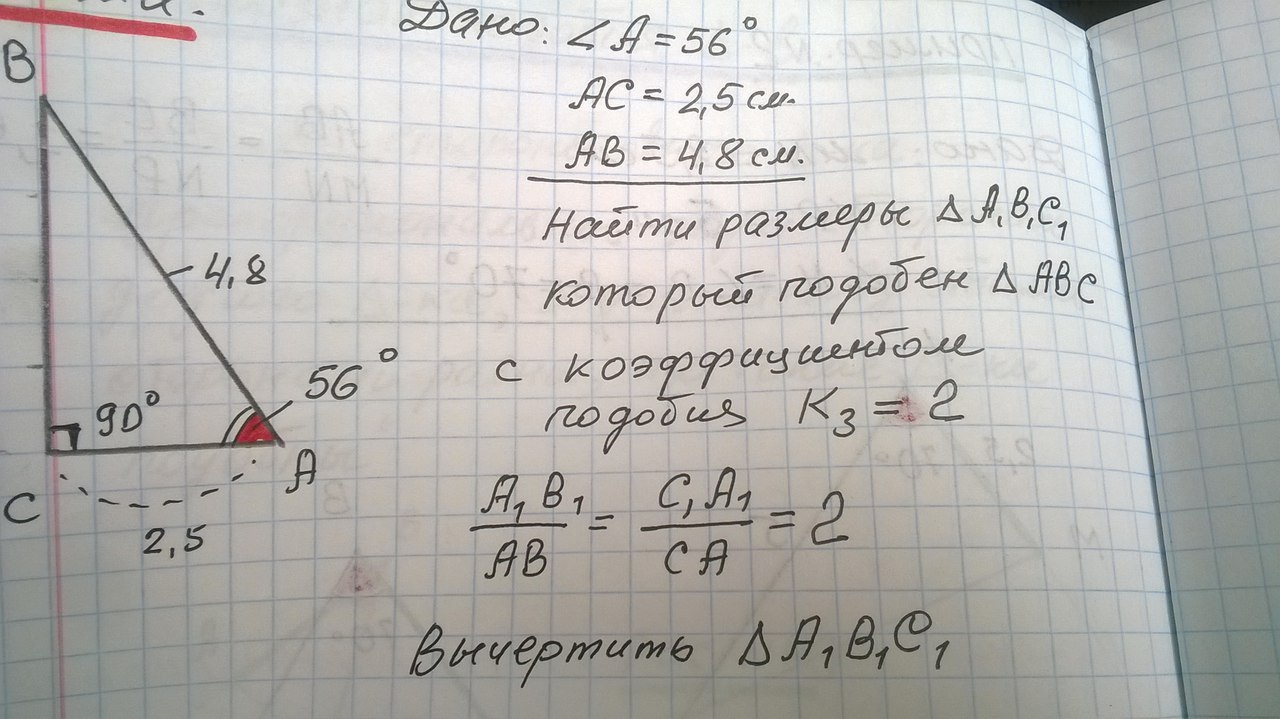 Дано: ∠A = 56°
AC = 2,5 см.
AB = 4,8 см.
Найти размеры Δ A₁B₁C₁
который подобен Δ ABC
с коэффициентом
подобия K₃ = 2
A₁B₁/AB = C₁A₁/CA = 2
Вычертить Δ A₁B₁C₁
B
4,8
56°
90°
A
C
2,5